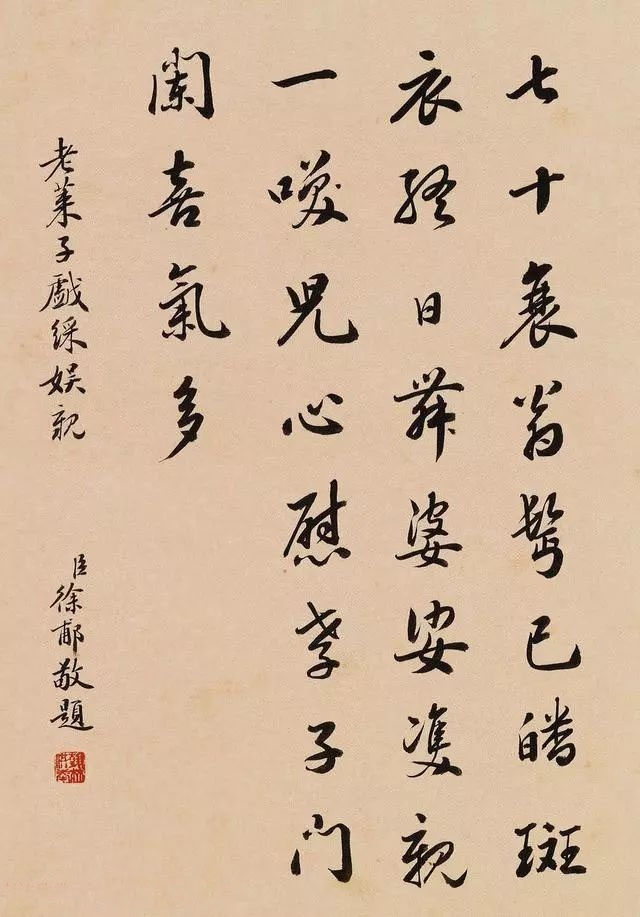 七十衰翁鬢已皤斑
衣終日舞婆娑雙親
一噗児心慰孝子門
闌喜氣多
老莱子戲綵娱親
臣徐郙敬題